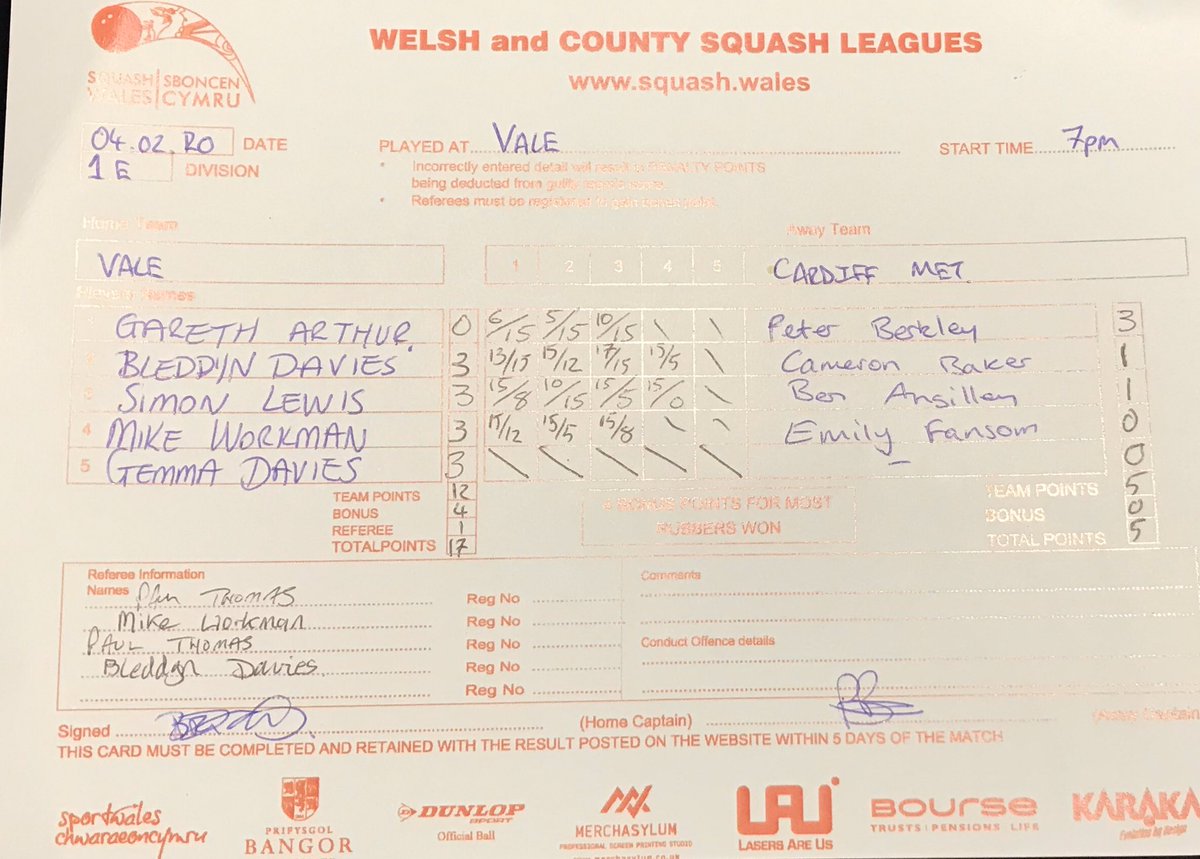 SQUASH WALES | SBONCEN CYMRU
WELSH and COUNTY SQUASH LEAGUES
www.squash.wales
04.02.20 DATE
PLAYED AT VALE
START TIME 7pm
1 E DIVISION
• Incorrectly entered detail will result in PENALTY POINTS
being deducted from guilty
• Referees must be registered to gain bonus point.
Home Team
Away Team
VALE 1 2 3 4 5 CARDIFF MET
Players Names
GARETH ARTHUR 0 6/15 5/15 10/15 \ \ Peter Berkley 3
2 BLEDDYN DAVIES 3 13/15 15/12 17/15 15/5 \ Cameron Baker 1
3 SIMON LEWIS 3 15/8 10/15 15/5 15/0 \ Ben Ansilley 1
4 MIKE WORKMAN 3 15/12 15/5 15/8 \ \ Emily Fansom 0
5 GEMMA DAVIES 3 \ \ \ \ \ 0
TEAM POINTS 12
BONUS 4
REFEREE 1
TOTALPOINTS 17
4 BONUS POINTS FOR MOST
RUBBERS WON
TEAM POINTS 5
BONUS 0
TOTAL POINTS 5
Referee Information
Names THOMAS Reg No
Mike Workman Reg No
PAUL THOMAS Reg No
Bleddyn Davies Reg No
Reg No
Comments
Conduct Offence details
Signed (Home Captain) (Away Captain)
THIS CARD MUST BE COMPLETED AND RETAINED WITH THE RESULT POSTED ON THE WEBSITE WITHIN 5 DAYS OF THE MATCH
sportwales
chwaraeoncymru
PRIFYSGOL
BANGOR
DUNLOP
SPORT
Official Ball
MERCHASYLUM
PROFESSIONAL SCREEN PRINTING STUDIO
www.merchasylum.co.uk
LAU
LASERS ARE US
BOURSE
TRUSTS | PENSIONS LIFE
KARAKA
Evolution by design